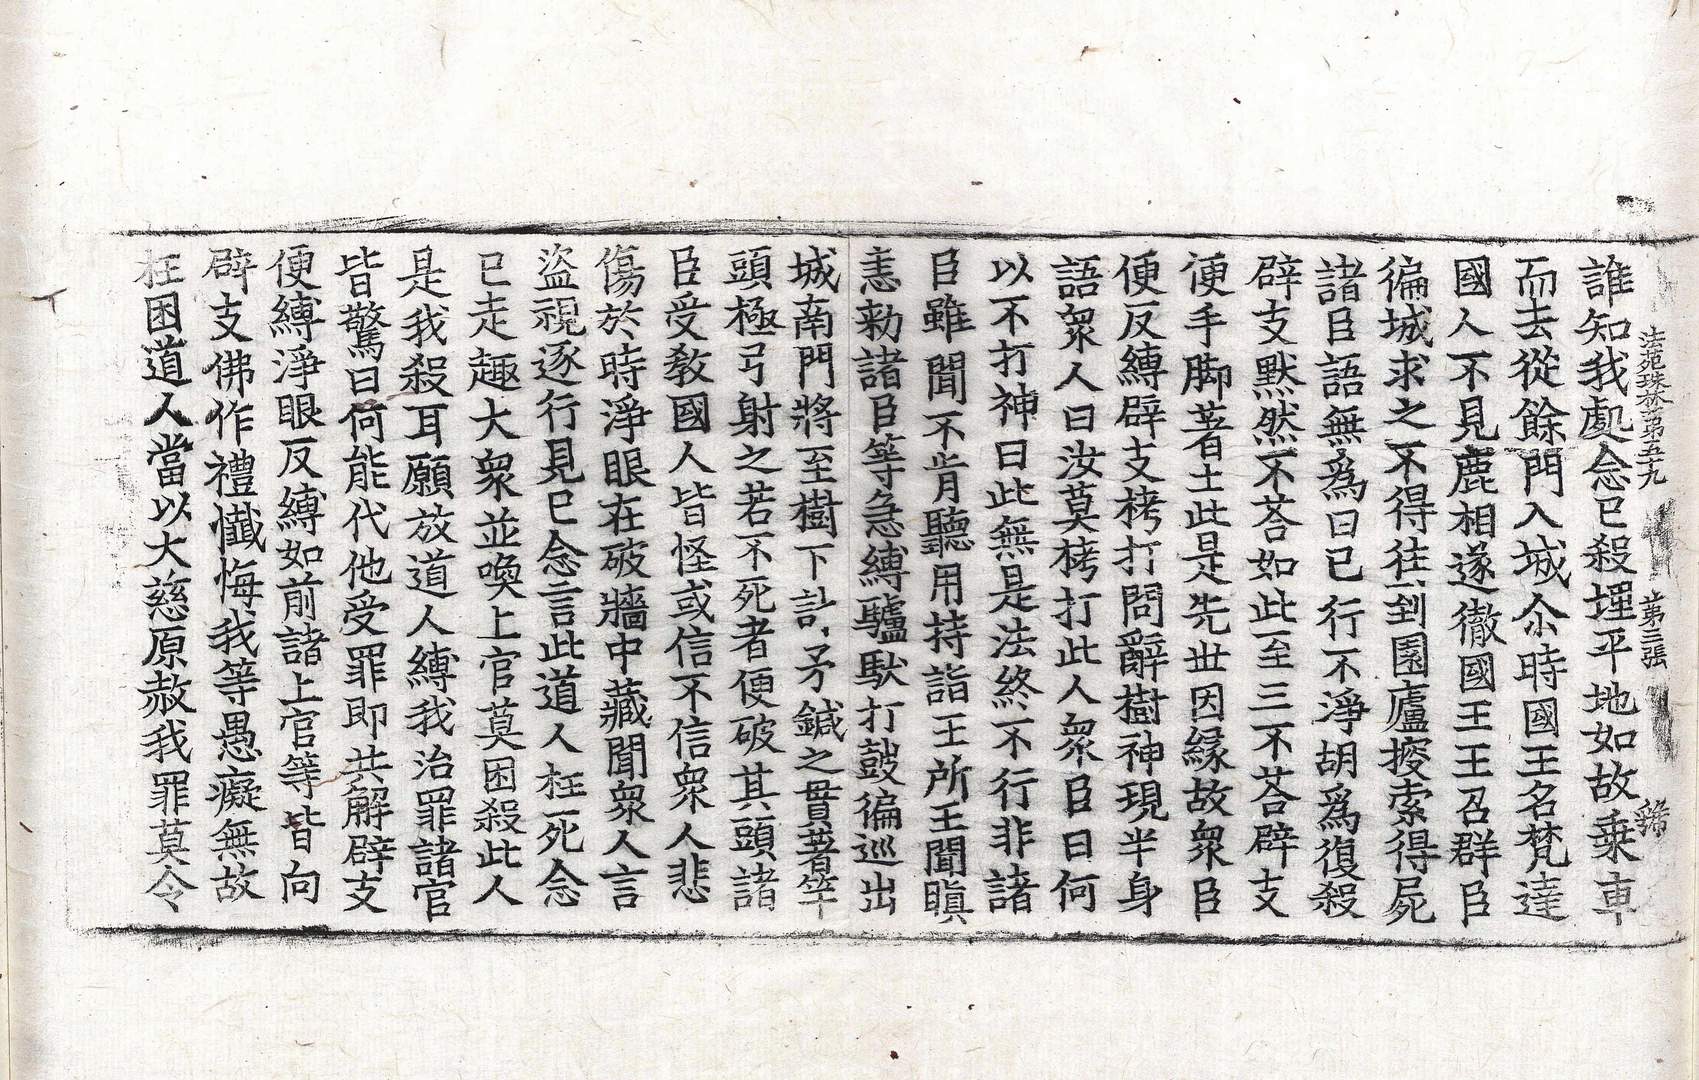 法苑珠林第五九　第三張　歸
誰知我處念已殺埋平地如故乗車
而去從餘門入城尒時國王名梵達
國人不見鹿相遂徹國王王召群臣
徧城求之不得徃到園廬搜索得屍
諸臣語無爲曰已行不淨胡爲復殺
辟支默然不荅如此至三不荅辟支
便手脚著土此是先世因緣故衆臣
便反縛辟支栲打問辭樹神現半身
語衆人曰汝莫栲打此人衆臣曰何
以不打神曰此無是法終不行非諸
臣雖聞不肯聽用持詣王所王聞瞋
恚勑諸臣等急縛驢䭾打鼓徧巡出
城南門將至樹下訃矛鏚之貫著竿
頭極弓射之若不死者便破其頭諸
臣受敎國人皆怪或信不信衆人悲
傷於時淨眼在破牆中藏聞衆人言
盜視逐行見已念言此道人枉死念
已走趣大衆並喚上官莫困殺此人
是我殺耳願放道人縛我治罪諸官
皆驚曰何能代他受罪即共解辟支
便縛淨眼反縛如前諸上官等皆向
辟支佛作禮懺悔我等愚癡無故
枉困道人當以大慈原赦我罪莫令